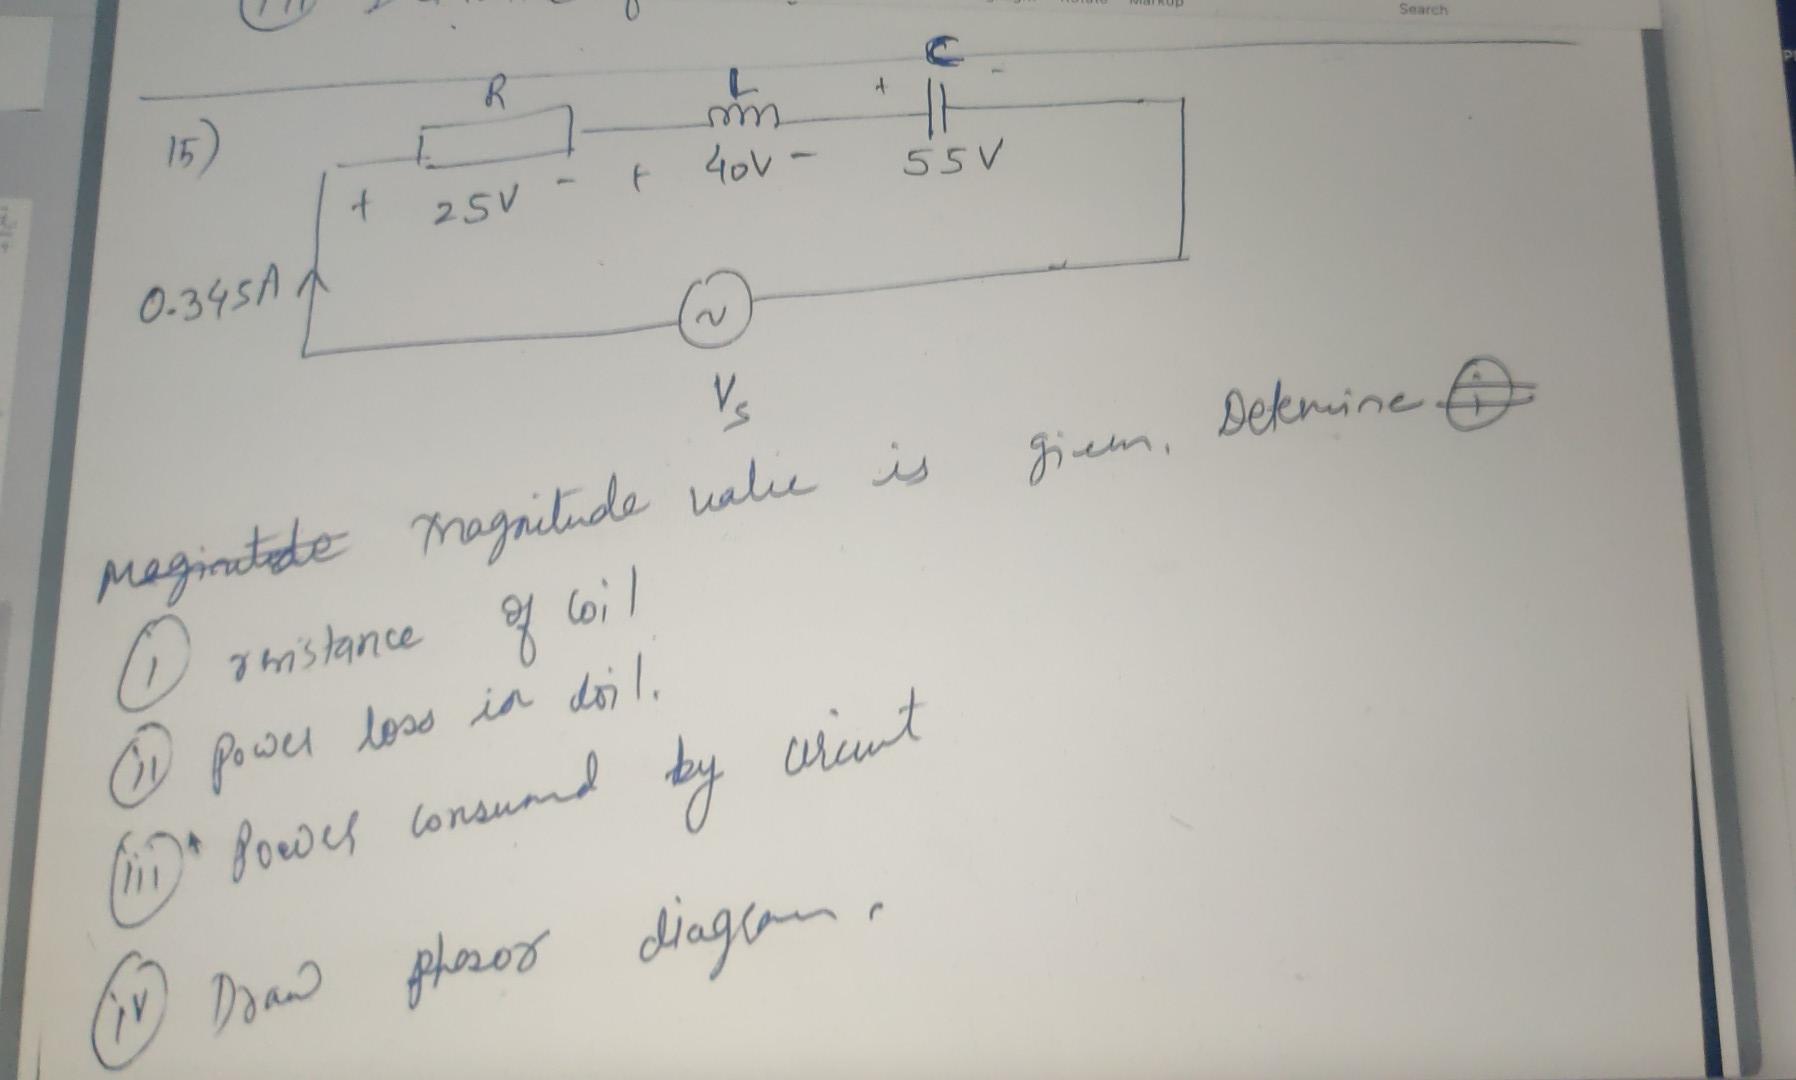 Search
R
L
C
15)
+ 25V -
+ 40V -
+ -
55V
0.345A
~
Vs
magnitude value is given. Determine
(i) resistance of coil
(ii) power loss in coil.
(iii) Power consumed by circuit
(iv) Draw phasor diagram.